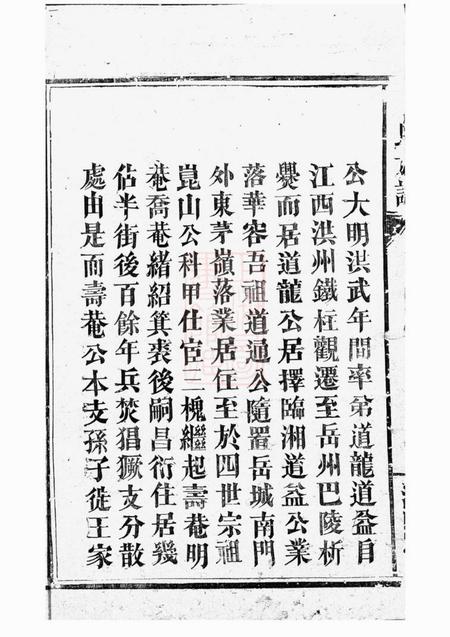 公大明洪武年間率弟道龍道益自
江西洪州鐵柱觀遷至岳州巴陵析
爨而居道龍公居擇臨湘道益公業
落華容吾祖道通公隨置岳城南門
外東茅嶺落業居住至於四世宗祖
崑山公科甲仕宦三槐繼起壽菴明
菴喬菴緒紹箕裘後嗣昌衍住居幾
佔半街後百餘年兵焚猖獗支分散
處由是而壽菴公本支孫子徙王家